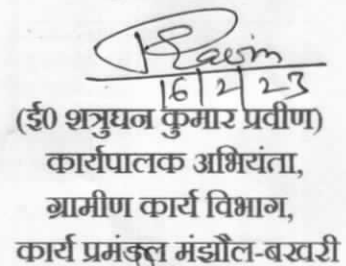 Pravin
16/2/23
(ई0 शत्रुघन कुमार प्रवीण)
कार्यपालक अभियंता,
ग्रामीण कार्य विभाग,
कार्य प्रमंडल मंझौल-बखरी